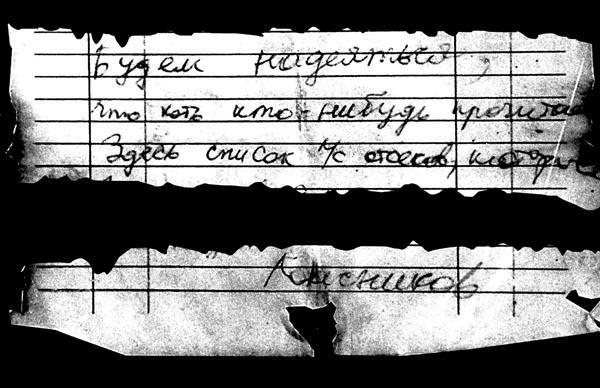 Будем надеяться,
что хоть кто-нибудь прочитае
Здесь список л/с отсеков, которые
Колесников